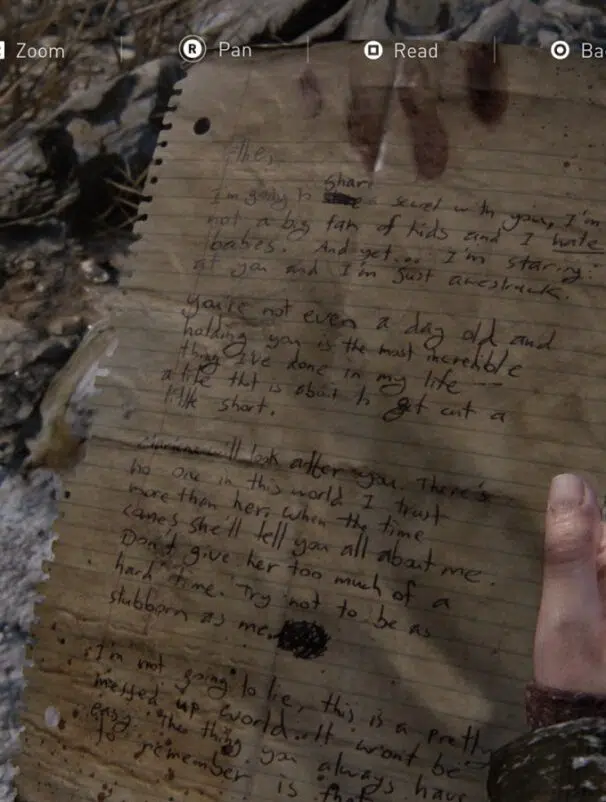 Zoom R Pan Read Bac
I'm going to share a secret with you, I'm
not a big fan of kids and I hate
babies. And yet... I'm staring
at you and I'm just awestruck.
You're not even a day old and
holding you is the most incredible
thing I've done in my life --
a life that is about to get cut a
little short.
will look after you. There's
no one in this world I trust
more than her. When the time
comes she'll tell you all about me.
Don't give her too much of a
hard time. Try not to be as
stubborn as me.
I'm not going to lie, this is a pretty
messed up world. It won't be
easy. The thing you always have
to remember is that